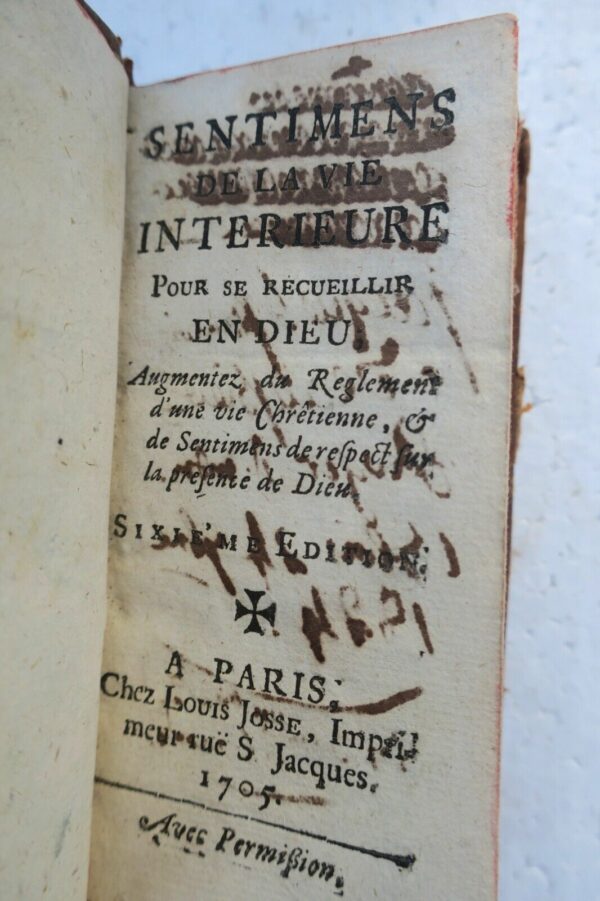 SENTIMENS
DE LA VIE
INTERIEURE
POUR SE RECUEILLIR
EN DIEU.
Augmentez du Reglement
d'une vie Chrêtienne, &
de Sentimens de reſpect ſur
la preſence de Dieu.
SIXIE'ME EDITION.
A PARIS,
Chez LOUIS JOSSE, Impri-
meur ruë S. Jacques.
1705.
Avec Permiſſion.